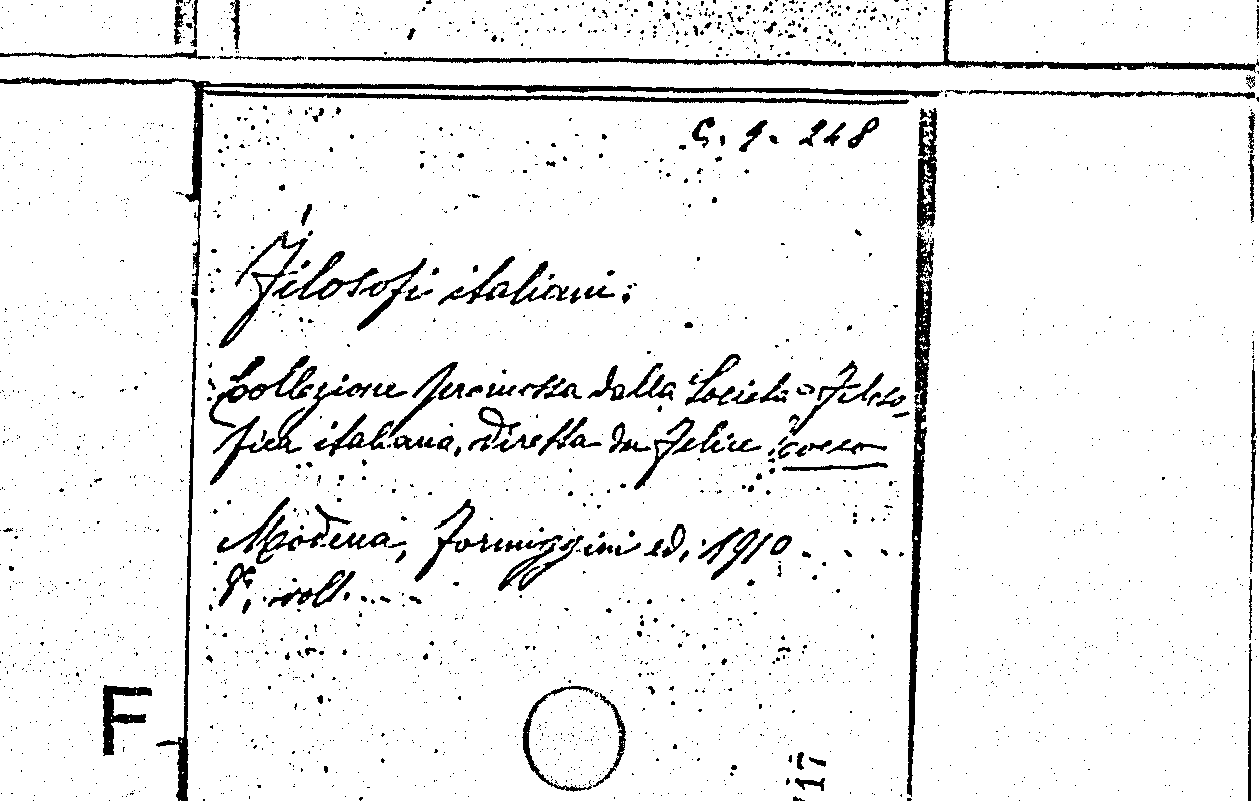 C. 9. 248
Filosofi italiani:
Collezione promossa dalla Società Filoso-
fica italiana, diretta da Felice Tocco
Modena, Formiggini ed, 1910 - . . . .
8°, voll. . . . .
F
17